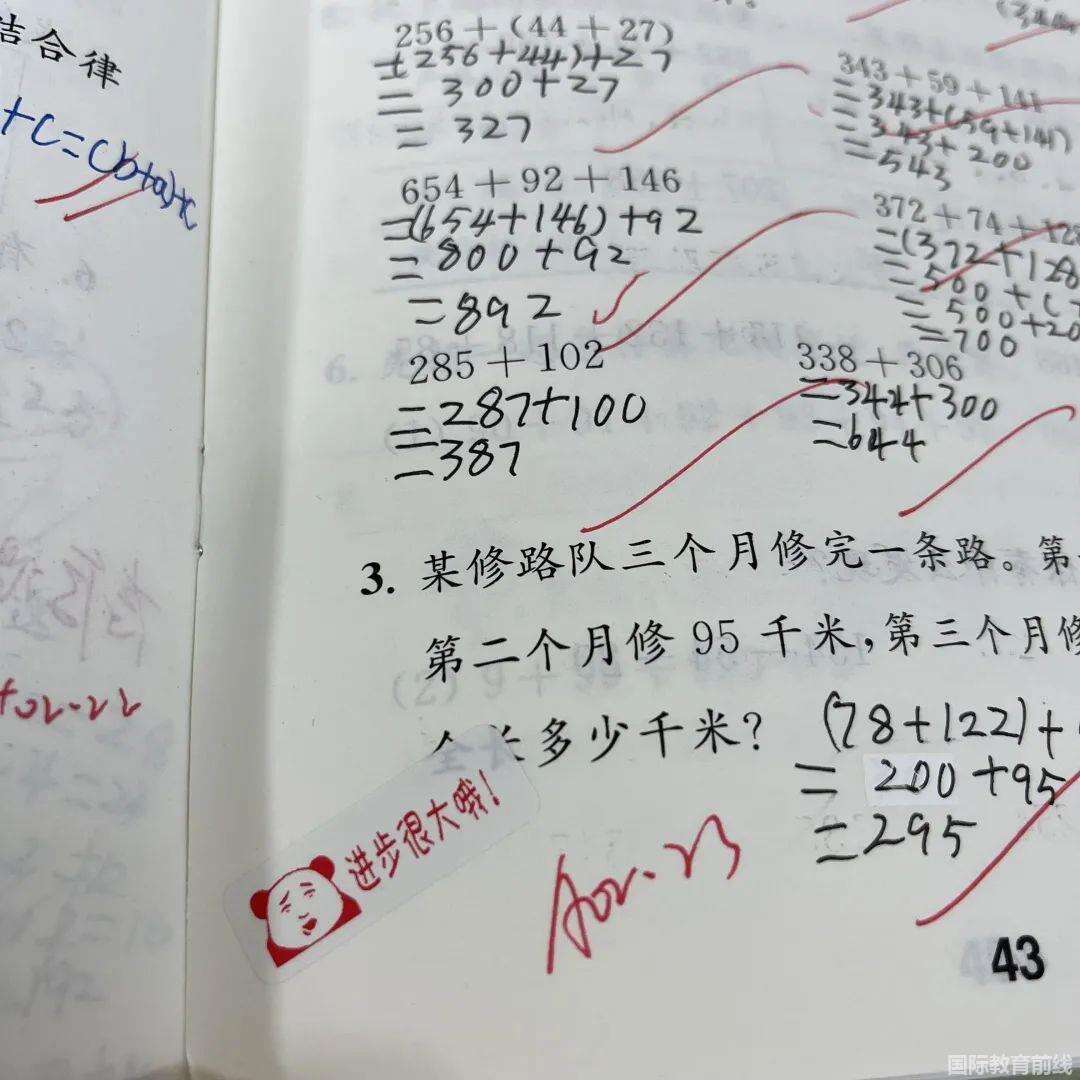 结合律
+c=(b+a)+c
256+(44+27)
=(256+44)+27
=300+27
=327
343+59+141
=343+(59+141)
=343+200
=543
654+92+146
=(654+146)+92
=800+92
=892
372+74+128
=(372+128
=500+(7
=500+20
=700
285+102
=287+100
=387
338+306
=344+300
=644
3. 某修路队三个月修完一条路。第
第二个月修 95 千米,第三个月修
全长多少千米?
(78+122)+
=200+95
=295
进步很大哦!
43
国际教育前线